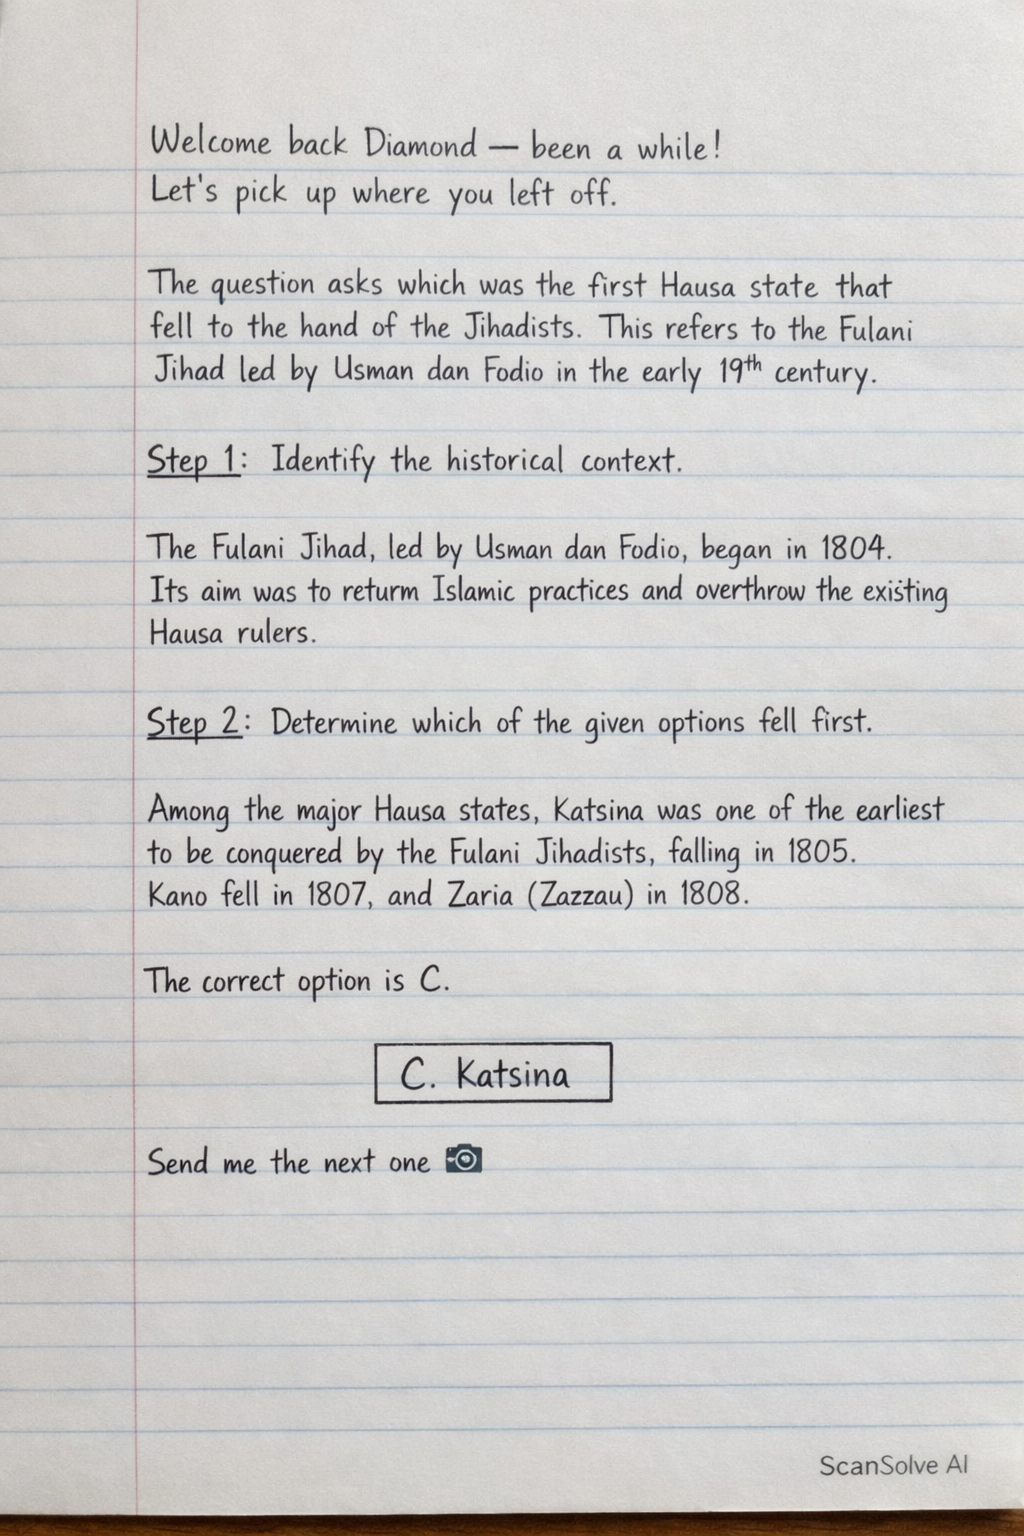 Welcome back Diamond — been a while!
Let's pick up where you left off.
The question asks which was the first Hausa state that
fell to the hand of the Jihadists. This refers to the Fulani
Jihad led by Usman dan Fodio in the early 19th century.
Step 1: Identify the historical context.
The Fulani Jihad, led by Usman dan Fodio, began in 1804.
Its aim was to returm Islamic practices and overthrow the existing
Hausa rulers.
Step 2: Determine which of the given options fell first.
Among the major Hausa states, Katsina was one of the earliest
to be conquered by the Fulani Jihadists, falling in 1805.
Kano fell in 1807, and Zaria (Zazzau) in 1808.
The correct option is C.
C. Katsina
Send me the next one 📷
ScanSolve AI